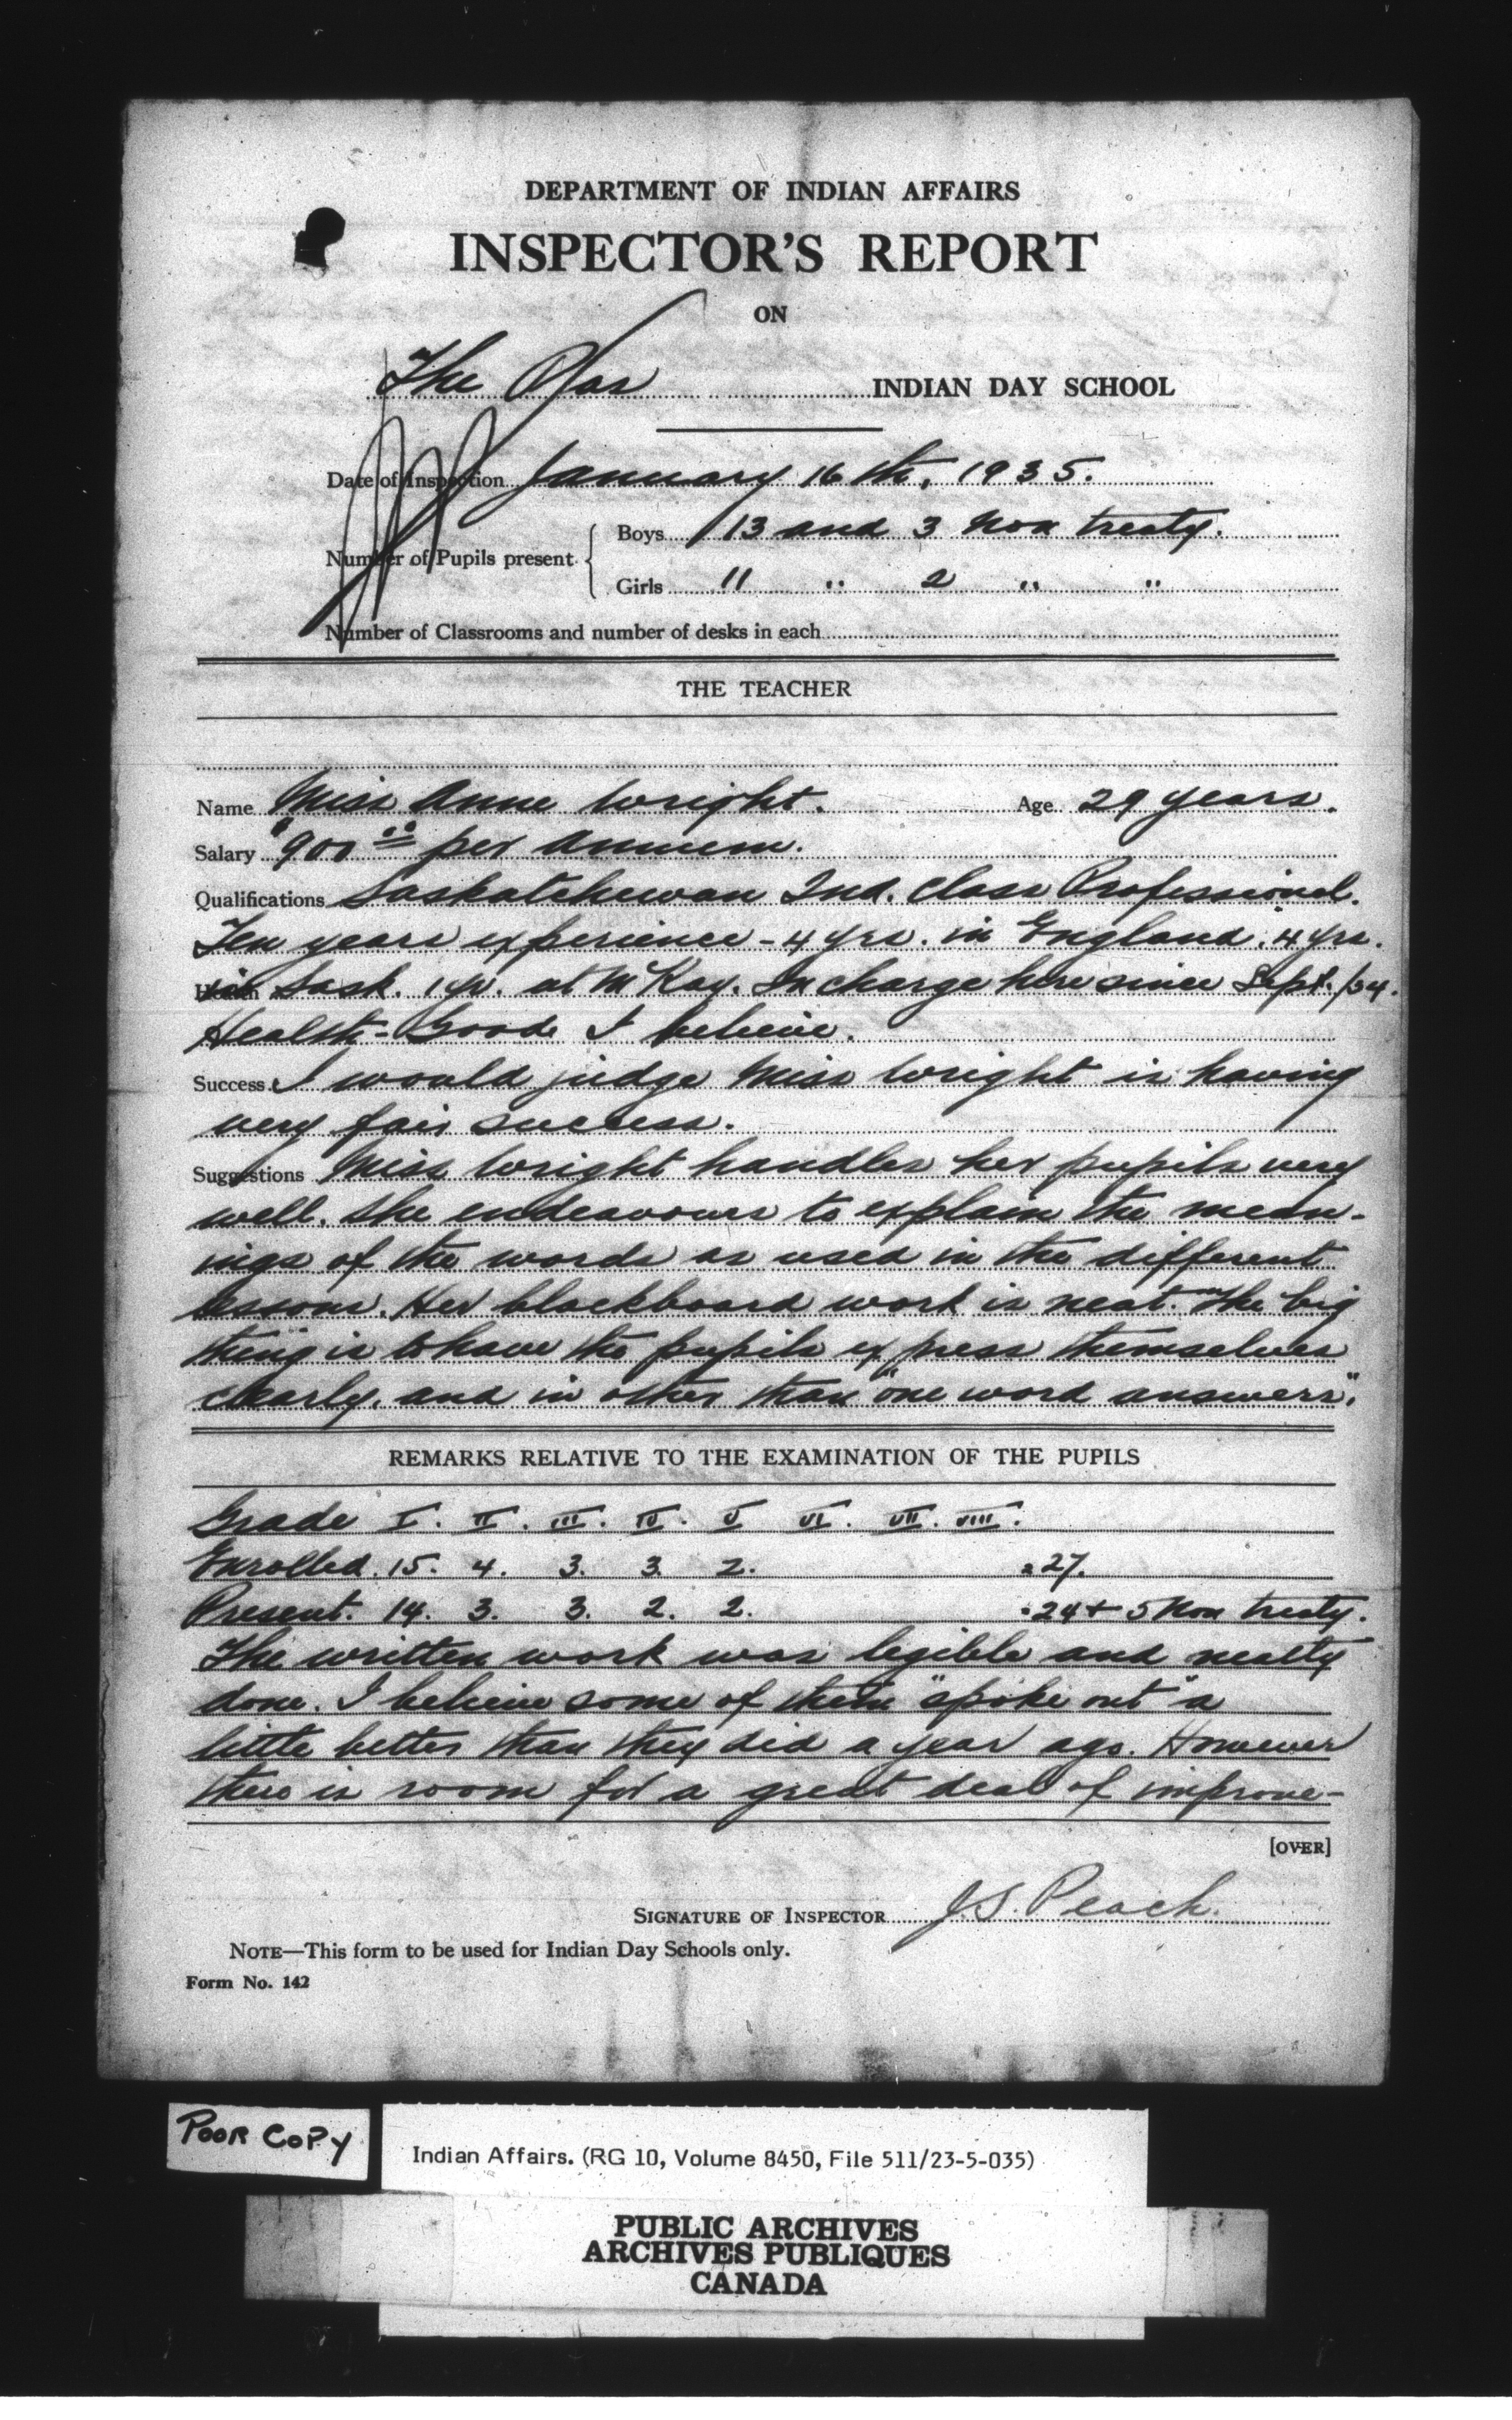 DEPARTMENT OF INDIAN AFFAIRS
INSPECTOR'S REPORT
ON
The Pas INDIAN DAY SCHOOL
Date of Inspection January 16th, 1935.
Number of Pupils present { Boys 13 and 3 Non treaty.
Girls 11 " 2 " "
Number of Classrooms and number of desks in each
THE TEACHER
Name Miss Anne Wright. Age 29 years.
Salary $900.00 per annum.
Qualifications Saskatchewan 2nd. Class Professional.
Ten years experience - 4 yrs. in England. 4 yrs.
Health in Sask. 1 yr. at McKay. In charge here since Sept. /34.
Health - Good I believe.
Success I would judge Miss Wright is having
very fair success.
Suggestions Miss Wright handles her pupils very
well. She endeavours to explain the mean-
ings of the words as used in the different
lessons. Her blackboard work is neat. The big
thing is to have the pupils express themselves
clearly, and in other than "one word answers".
REMARKS RELATIVE TO THE EXAMINATION OF THE PUPILS
Grade I. II. III. IV. V VI. VII. VIII.
Enrolled. 15. 4. 3. 3. 2. = 27.
Present. 14. 3. 3. 2. 2. = 24 + 5 Non treaty.
The written work was legible and neatly
done. I believe some of them "spoke out" a
little better than they did a year ago. However
there is room for a great deal of improve-
[OVER]
SIGNATURE OF INSPECTOR J.S. Peach.
NOTE—This form to be used for Indian Day Schools only.
Form No. 142
POOR COPY
Indian Affairs. (RG 10, Volume 8450, File 511/23-5-035)
PUBLIC ARCHIVES
ARCHIVES PUBLIQUES
CANADA